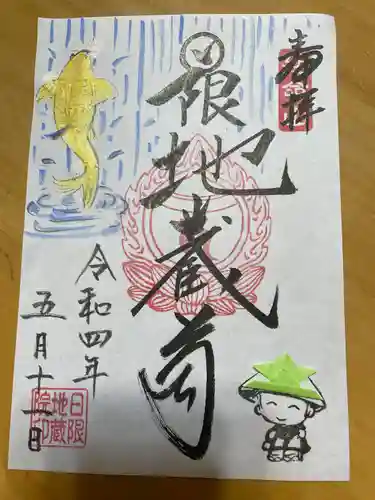 奉拝
日限地蔵尊
令和四年
五月十一日
日限
地蔵
院印